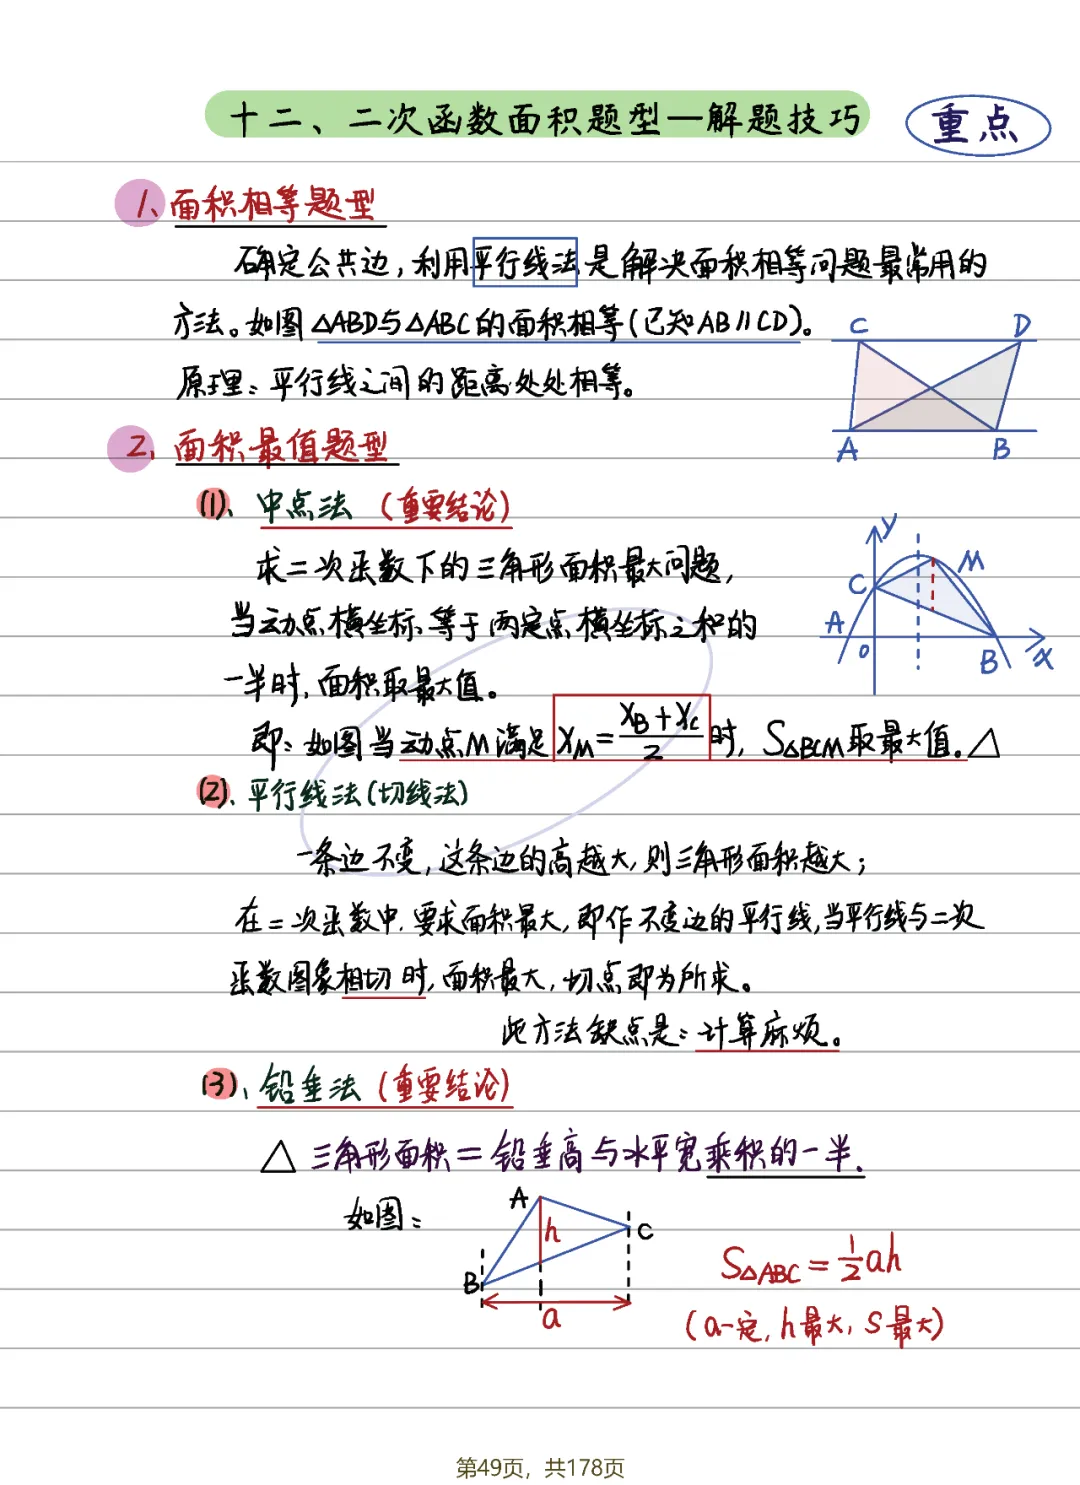 十二、二次函数面积题型—解题技巧 重点
1、面积相等题型
确定公共边,利用平行线法是解决面积相等问题最常用的
方法。如图△ABD与△ABC的面积相等(已知AB∥CD)。
原理:平行线之间的距离处处相等。
C D
A B
2、面积最值题型
(1)、中点法(重要结论)
求二次函数下的三角形面积最大问题,
当动点横坐标等于两定点横坐标之和的
一半时,面积取最大值。
y
C M
A O B x
即:如图当动点M满足 x_M=(x_B+x_C)/2 时,S△BCM取最大值。△
(2)、平行线法(切线法)
一条边不变,这条边的高越大,则三角形面积越大;
在二次函数中,要求面积最大,即作不变边的平行线,当平行线与二次
函数图象相切时,面积最大,切点即为所求。
此方法缺点是:计算麻烦。
(3)、铅垂法(重要结论)
△三角形面积=铅垂高与水平宽乘积的一半.
如图:
A
h C
B
a
S△ABC=1/2ah
(a一定,h最大,S最大)
第49页,共178页